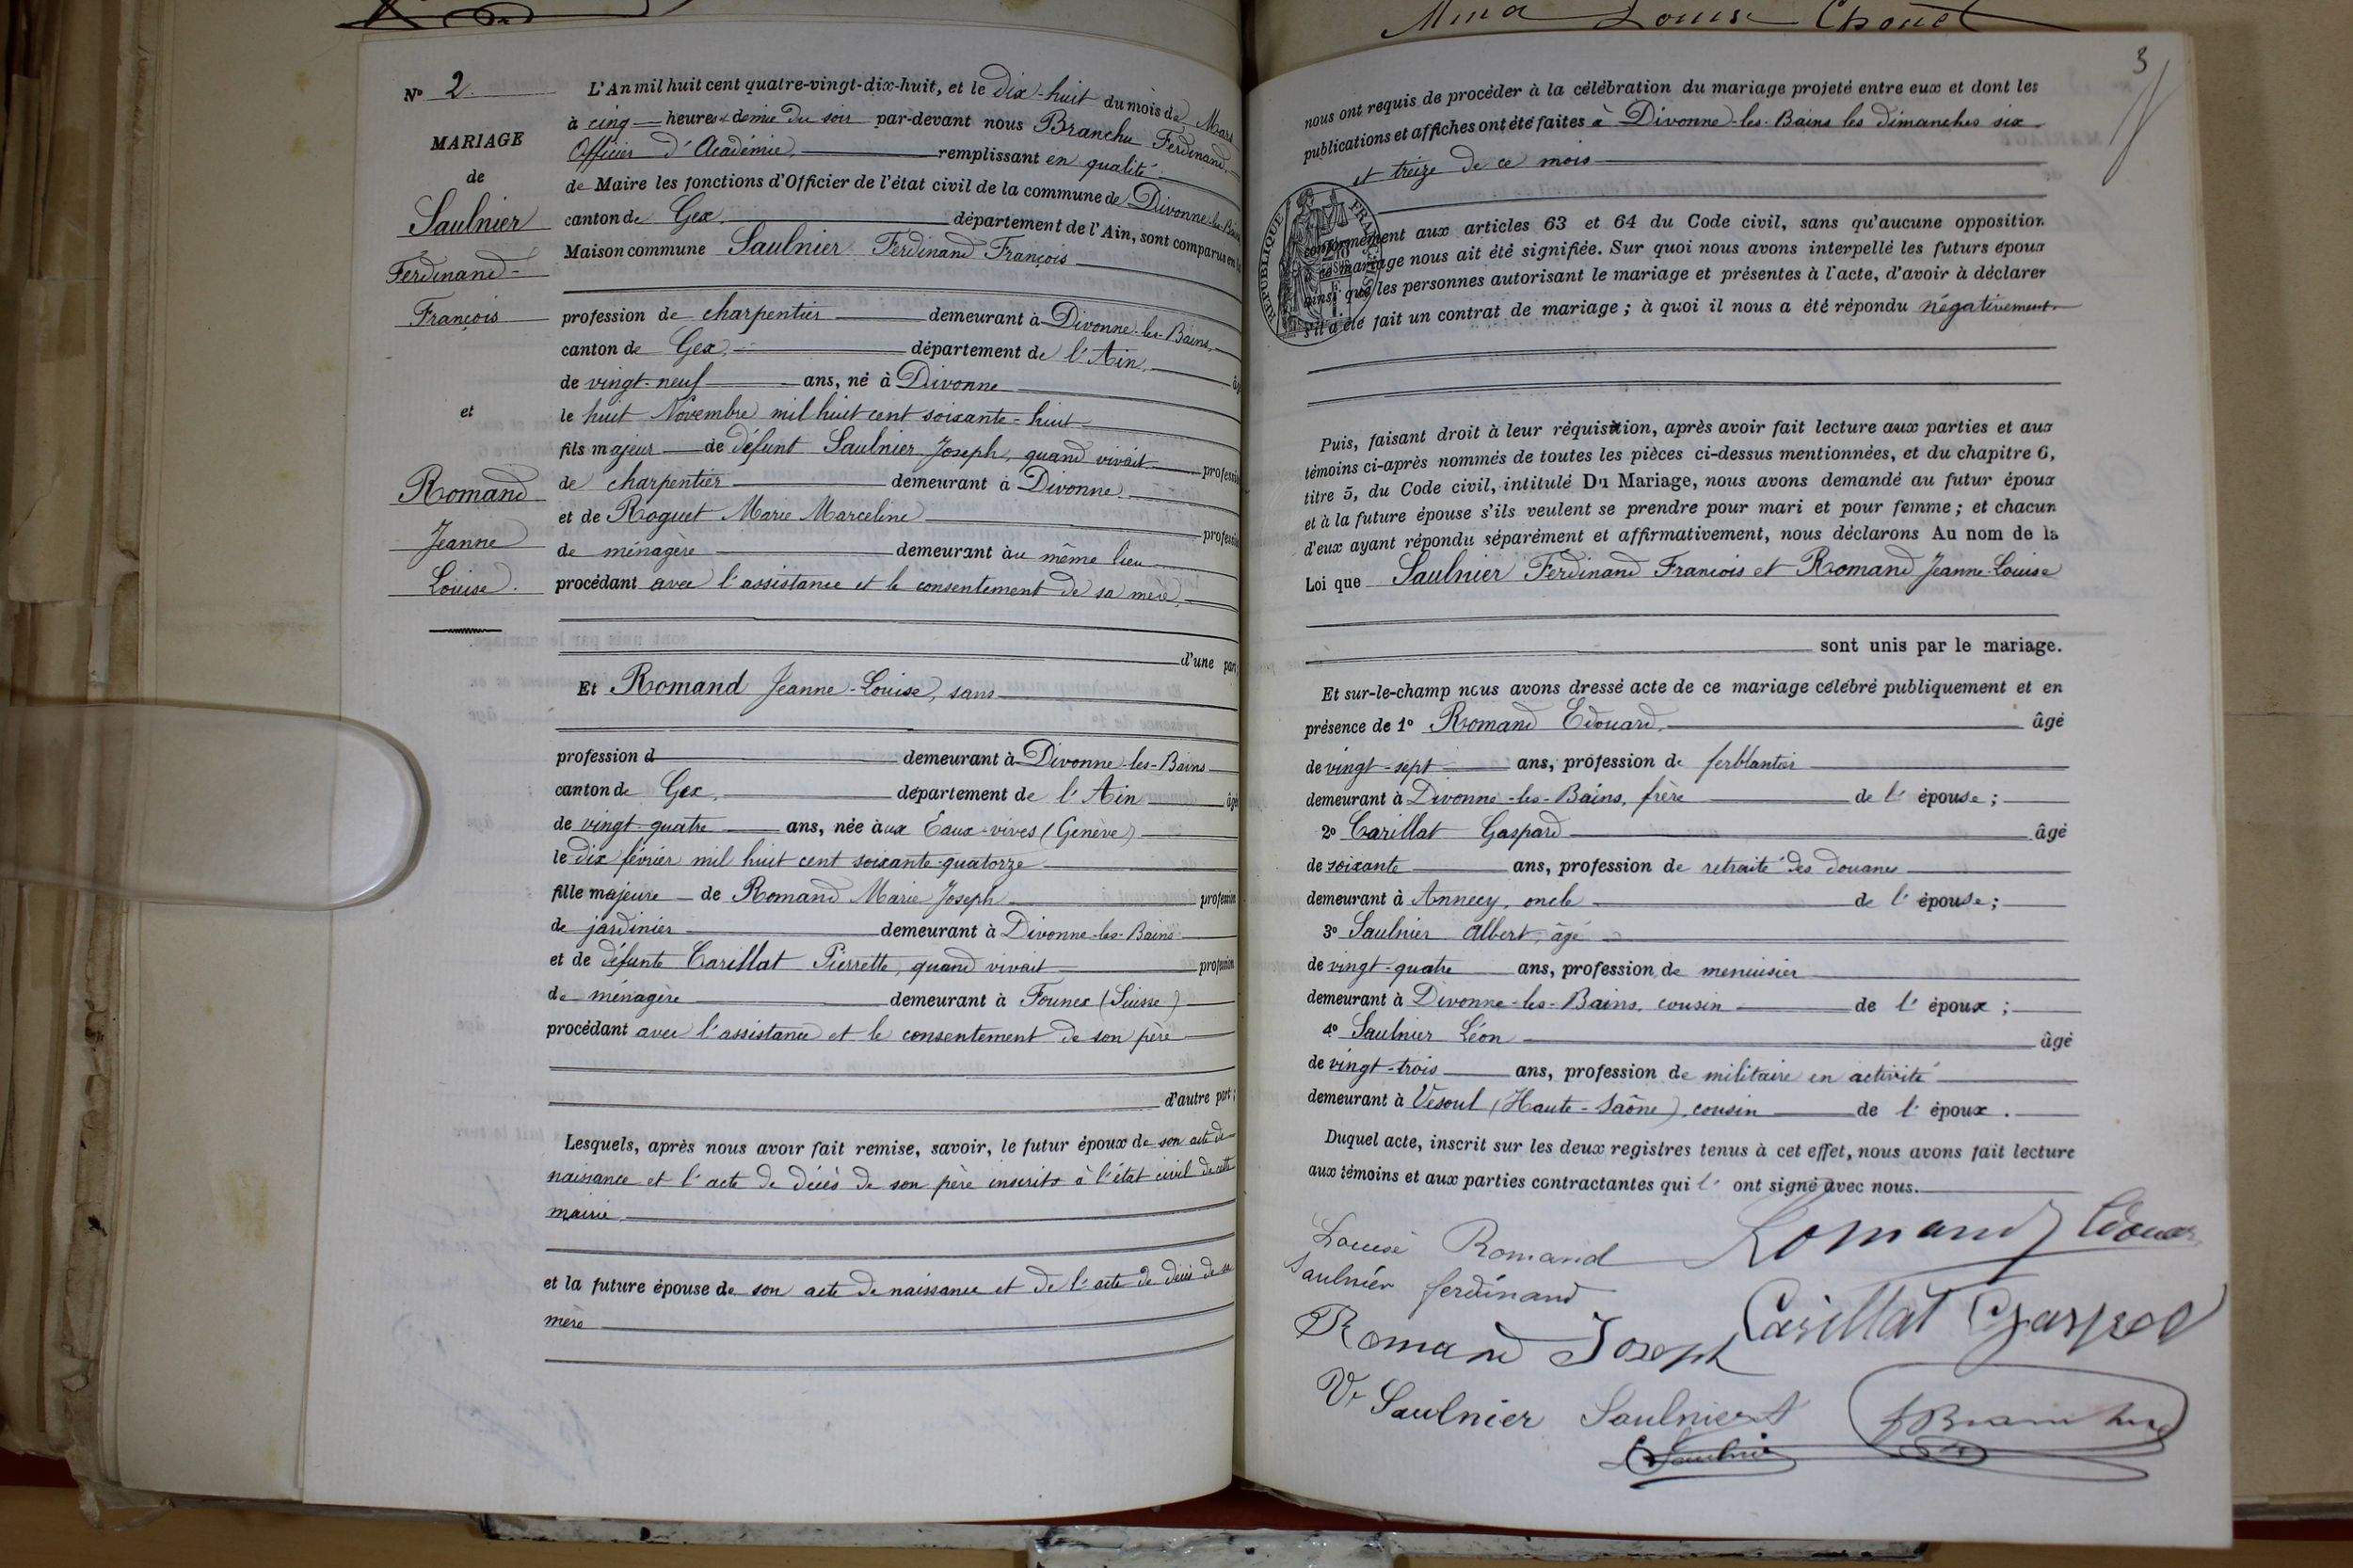 Nº 2
MARIAGE
de
Saulnier
Ferdinand
François
et
Romand
Jeanne
Louise.
L'An mil huit cent quatre-vingt-dix-huit, et le dix-huit du mois de Mars
à cinq heures & demie du soir par-devant nous Branchu Ferdinand,
Officier d'Académie, remplissant en qualité
de Maire les fonctions d'Officier de l'état civil de la commune de Divonne-les-Bains
canton de Gex, département de l'Ain, sont comparus en la
Maison commune Saulnier Ferdinand François
profession de charpentier demeurant à Divonne-les-Bains,
canton de Gex, département de l'Ain, âgé
de vingt-neuf ans, né à Divonne
le huit Novembre mil huit cent soixante-huit
fils majeur de défunt Saulnier Joseph, quand vivait profession
de charpentier demeurant à Divonne
et de Roguet Marie Marceline profession
de ménagère demeurant au même lieu
procédant avec l'assistance et le consentement de sa mère,
d'une part;
Et Romand Jeanne-Louise, sans
profession d demeurant à Divonne-les-Bains
canton de Gex, département de l'Ain âgé
de vingt-quatre ans, née aux Eaux-vives (Genève)
le dix février mil huit cent soixante-quatorze
fille majeure de Romand Marie Joseph profession
de jardinier demeurant à Divonne-les-Bains
et de défunte Carillat Pierrette, quand vivait profession
de ménagère demeurant à Founex (Suisse)
procédant avec l'assistance et le consentement de son père
d'autre part;
Lesquels, après nous avoir fait remise, savoir, le futur époux de son acte de
naissance et l'acte de décès de son père inscrits à l'état civil de cette
mairie
et la future épouse de son acte de naissance et de l'acte de décès de sa
mère
Louise
3
nous ont requis de procéder à la célébration du mariage projeté entre eux et dont les
publications et affiches ont été faites à Divonne-les-Bains les dimanches six
et treize de ce mois
REPUBLIQUE FRANÇAISE
conformément aux articles 63 et 64 du Code civil, sans qu'aucune opposition
à ce mariage nous ait été signifiée. Sur quoi nous avons interpellé les futurs époux
ainsi que les personnes autorisant le mariage et présentes à l'acte, d'avoir à déclarer
s'il a été fait un contrat de mariage; à quoi il nous a été répondu négativement
Puis, faisant droit à leur réquisition, après avoir fait lecture aux parties et aux
témoins ci-après nommés de toutes les pièces ci-dessus mentionnées, et du chapitre 6,
titre 5, du Code civil, intitulé Du Mariage, nous avons demandé au futur époux
et à la future épouse s'ils veulent se prendre pour mari et pour femme; et chacun
d'eux ayant répondu séparément et affirmativement, nous déclarons Au nom de la
Loi que Saulnier Ferdinand François et Romand Jeanne-Louise
sont unis par le mariage.
Et sur-le-champ nous avons dressé acte de ce mariage célébré publiquement et en
présence de 1º Romand Edouard, âgé
de vingt-sept ans, profession de ferblantier
demeurant à Divonne-les-Bains, frère de l'épouse;
2º Carillat Gaspard âgé
de soixante ans, profession de retraité des douanes
demeurant à Annecy, oncle de l'épouse;
3º Saulnier Albert, âgé
de vingt-quatre ans, profession de menuisier
demeurant à Divonne-les-Bains, cousin de l'époux;
4º Saulnier Léon âgé
de vingt-trois ans, profession de militaire en activité
demeurant à Vesoul (Haute-Saône), cousin de l'époux.
Duquel acte, inscrit sur les deux registres tenus à cet effet, nous avons fait lecture
aux témoins et aux parties contractantes qui l'ont signé avec nous.
Louise Romand Romand Edouard
Saulnier ferdinand
Romand Joseph Carillat Gaspard
Ve Saulnier Saulnier A FBranchu
L Saulnier